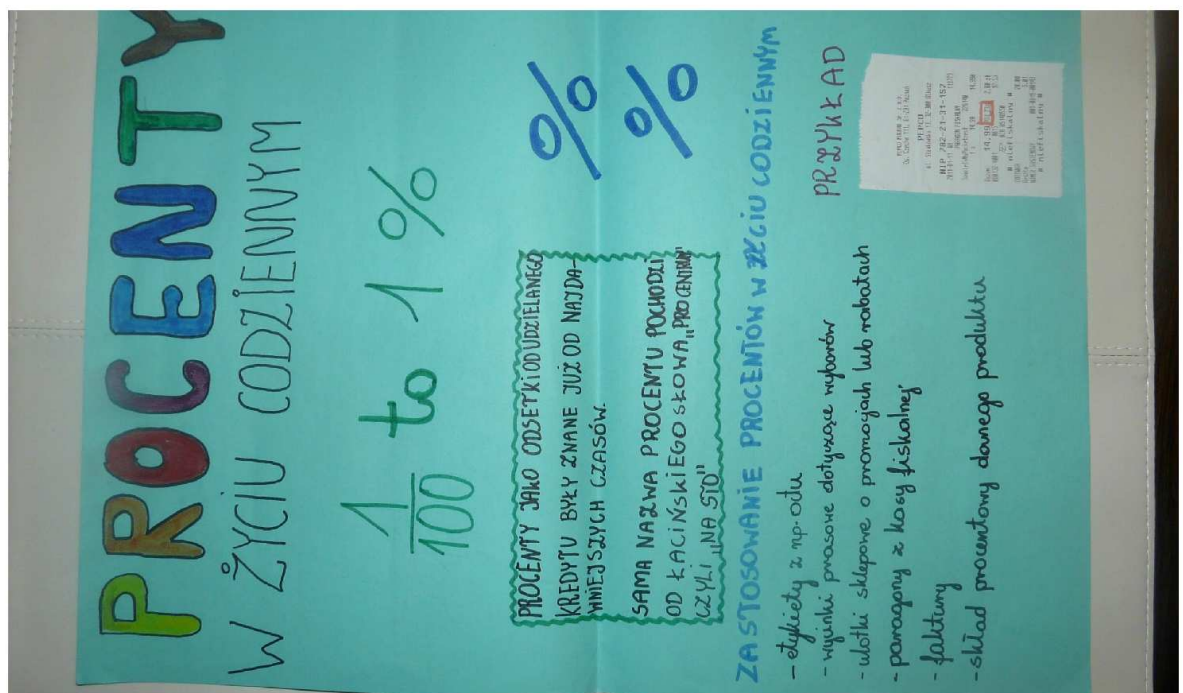 PROCENTY
W ŻYCIU CODZIENNYM
1/100 to 1 %
PROCENTY JAKO ODSETKI OD UDZIELANEGO
KREDYTU BYŁY ZNANE JUŻ OD NAJDA-
WNIEJSZYCH CZASÓW.
SAMA NAZWA PROCENTU POCHODZI
OD ŁACIŃSKIEGO SŁOWA „PRO CENTUM"
CZYLI „NA STO"
%
%
ZASTOSOWANIE PROCENTÓW W ŻYCIU CODZIENNYM
- etykiety z np. odu
- wycinki prasowe dotyczące wyborów
- ulotki sklepowe o promocjach lub rabatach
- paragony z kasy fiskalnej
- faktury
- skład procentowy danego produktu
PRZYKŁAD
PEPCO
NIP 782-21-31-157
14,99
# niefiskalny #
# niefiskalny #